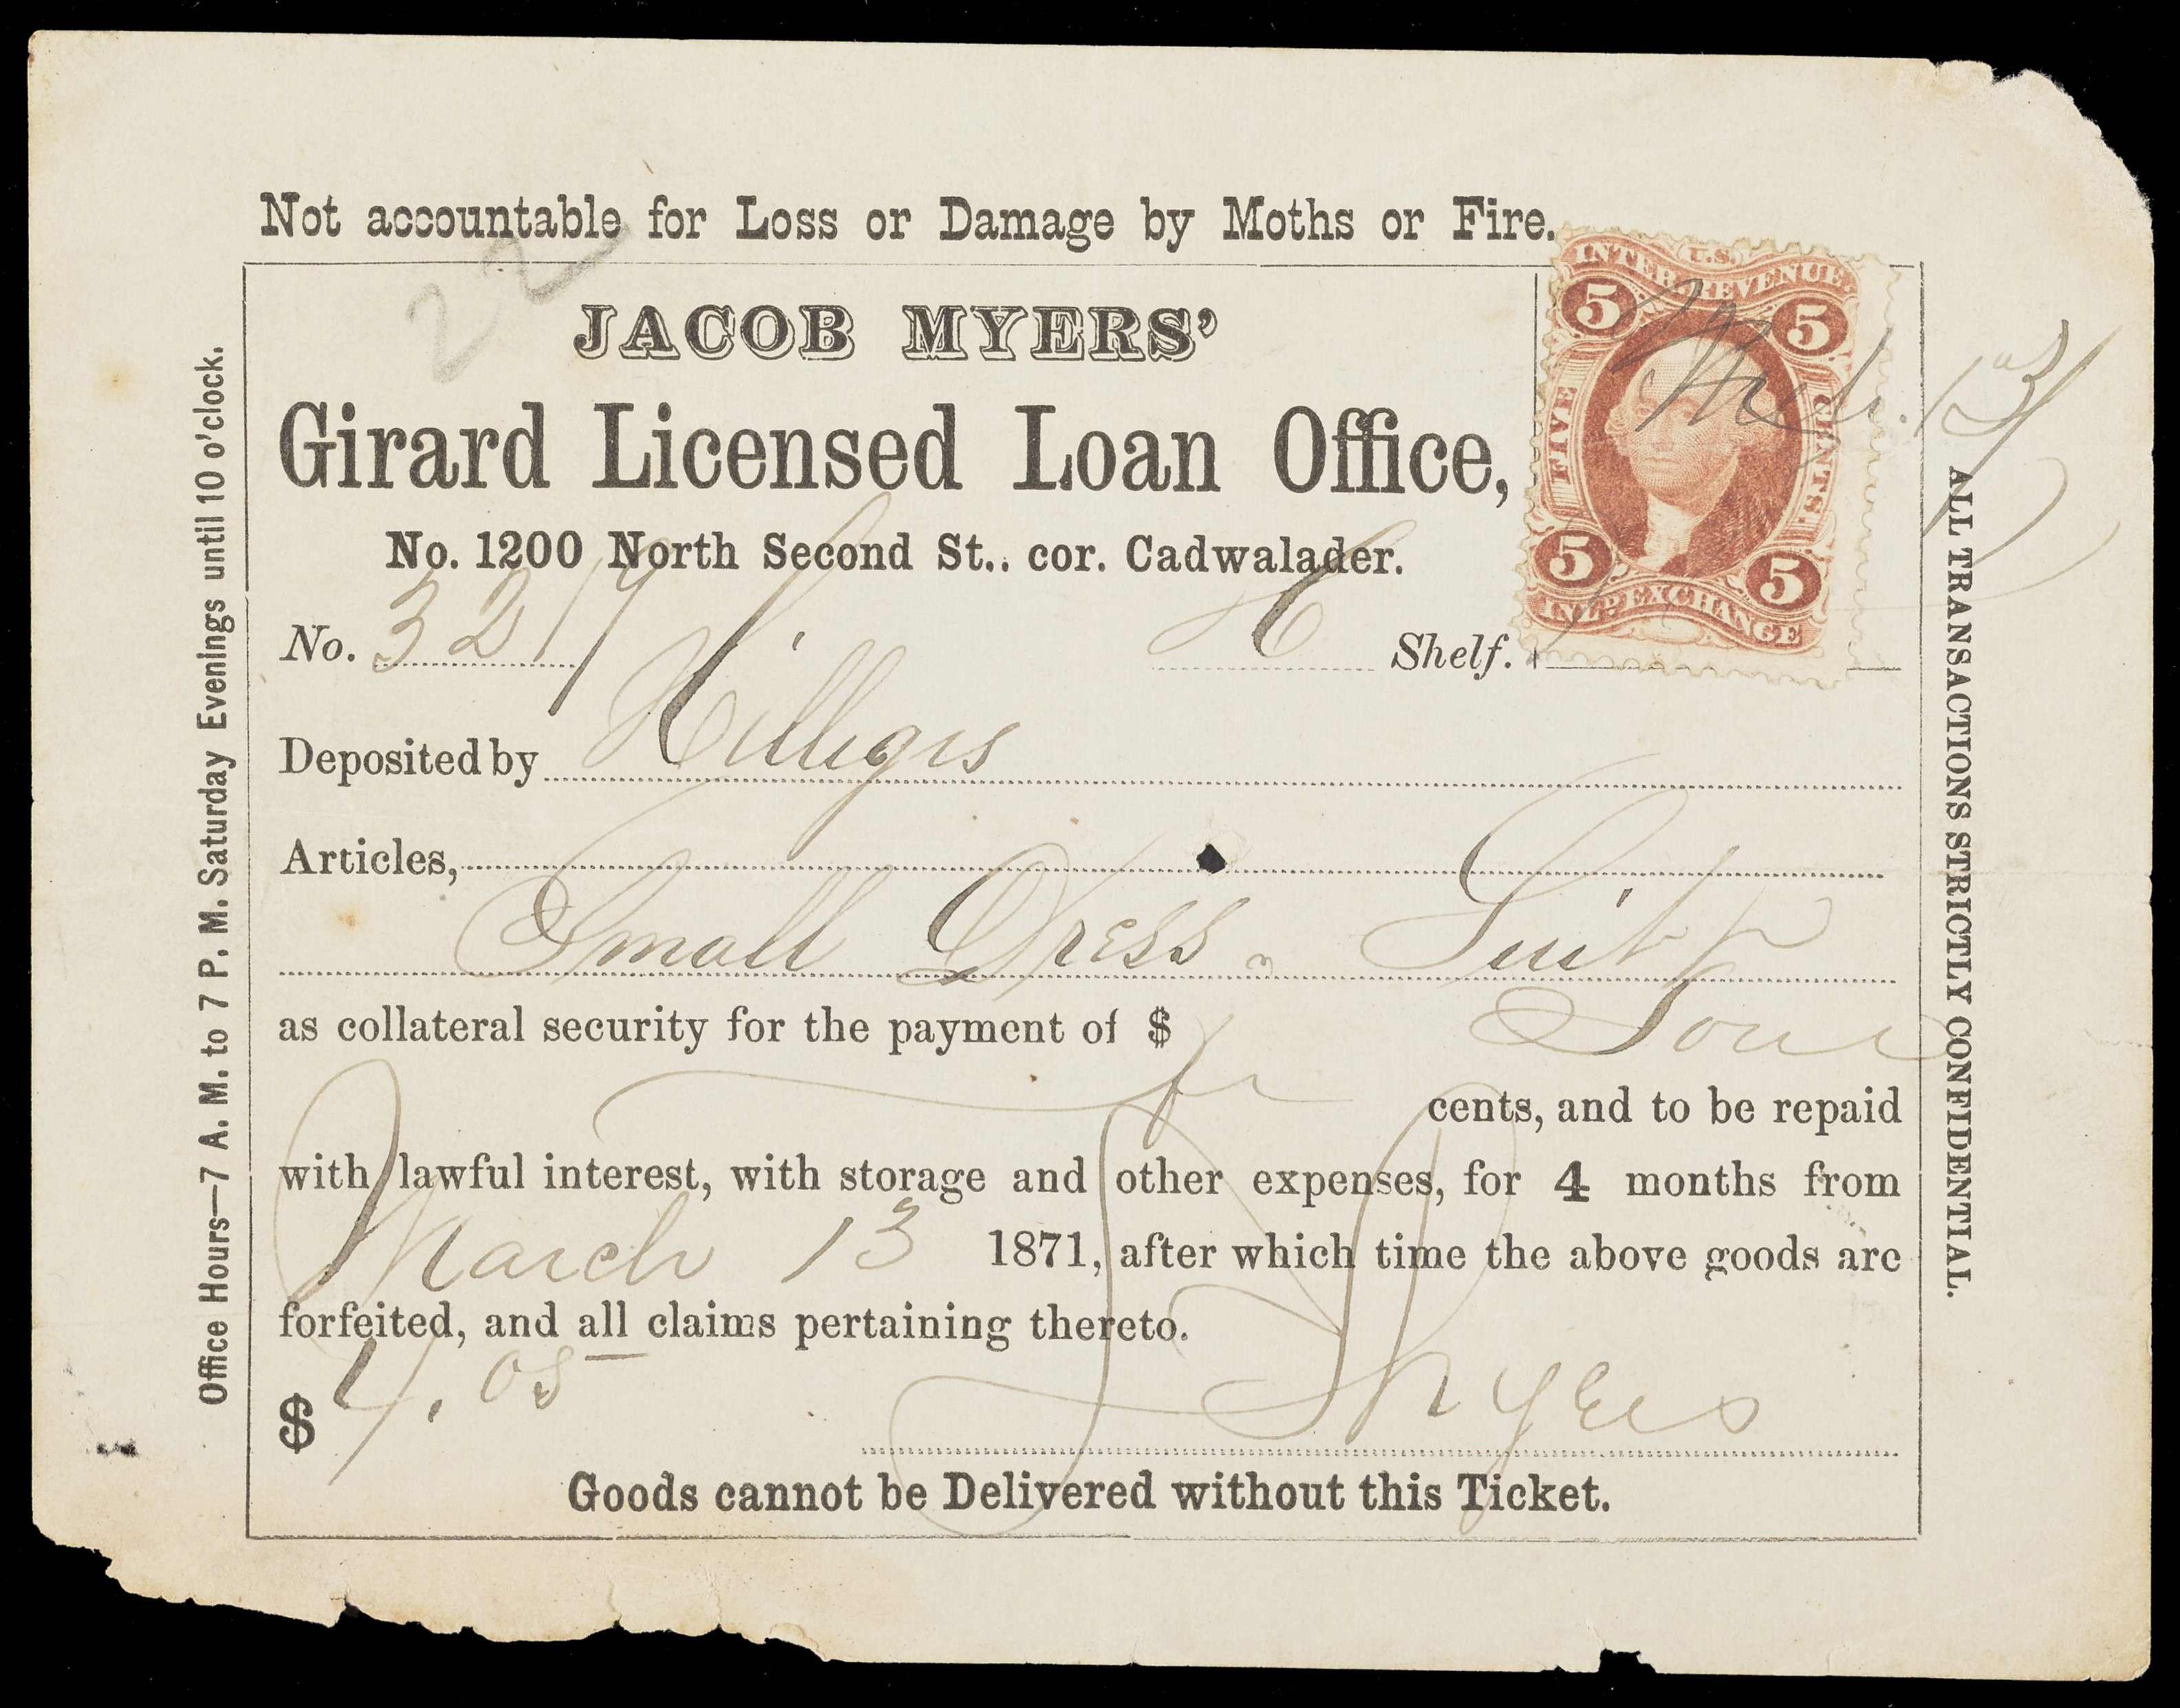 Not accountable for Loss or Damage by Moths or Fire.
22
JACOB MYERS'
Girard Licensed Loan Office,
No. 1200 North Second St., cor. Cadwalader.
U.S.
INTER. REVENUE.
5 5
FIVE CENTS.
5 5
INLD EXCHANGE
Mch. 13/
No. 3219 Shelf.
Deposited by Hilligis
Articles,
Small Dress, Suit
as collateral security for the payment of $ Four
cents, and to be repaid
with lawful interest, with storage and other expenses, for 4 months from
March 13 1871, after which time the above goods are
forfeited, and all claims pertaining thereto.
$ 4.05 J Myers
Goods cannot be Delivered without this Ticket.
Office Hours—7 A. M. to 7 P. M. Saturday Evenings until 10 o'clock.
ALL TRANSACTIONS STRICTLY CONFIDENTIAL.